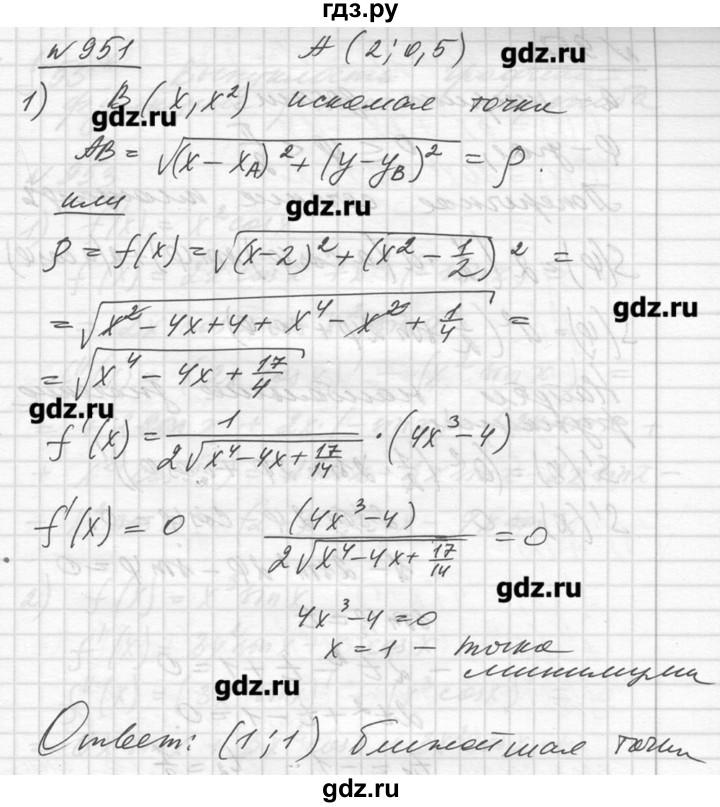 гдз.ру
№951 A (2; 0,5) gdz.ru
1) B (x, x²) искомая точка
gdz.ru
AB = √((x - x_A)² + (y - y_B)²) = ρ.
или gdz.ru
ρ = f(x) = √((x-2)² + (x² - 1/2)²) =
= √(x² - 4x + 4 + x⁴ - x² + 1/4) = gdz.ru
= √(x⁴ - 4x + 17/4)
gdz.ru
f'(x) = 1/(2√(x⁴ - 4x + 17/14)) · (4x³ - 4)
f'(x) = 0 (4x³ - 4)/(2√(x⁴ - 4x + 17/14)) = 0
gdz.ru
4x³ - 4 = 0
x = 1 – точка
минимума
gdz.ru
Ответ: (1; 1) ближайшая точка
gdz.ru